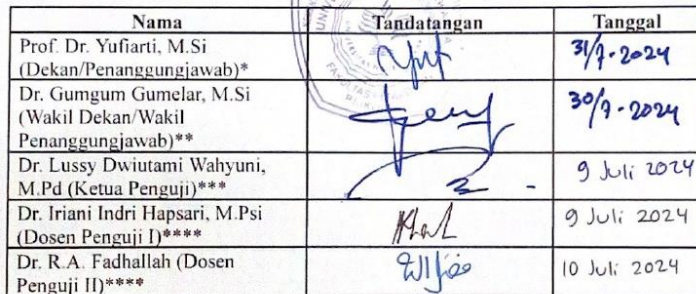 Nama Tandatangan Tanggal
Prof. Dr. Yufiarti, M.Si
(Dekan/Penanggungjawab)*
31/7-2024
Dr. Gumgum Gumelar, M.Si
(Wakil Dekan/Wakil
Penanggungjawab)**
30/7-2024
Dr. Lussy Dwiutami Wahyuni,
M.Pd (Ketua Penguji)***
9 Juli 2024
Dr. Iriani Indri Hapsari, M.Psi
(Dosen Penguji I)****
9 Juli 2024
Dr. R.A. Fadhallah (Dosen
Penguji II)****
10 Juli 2024